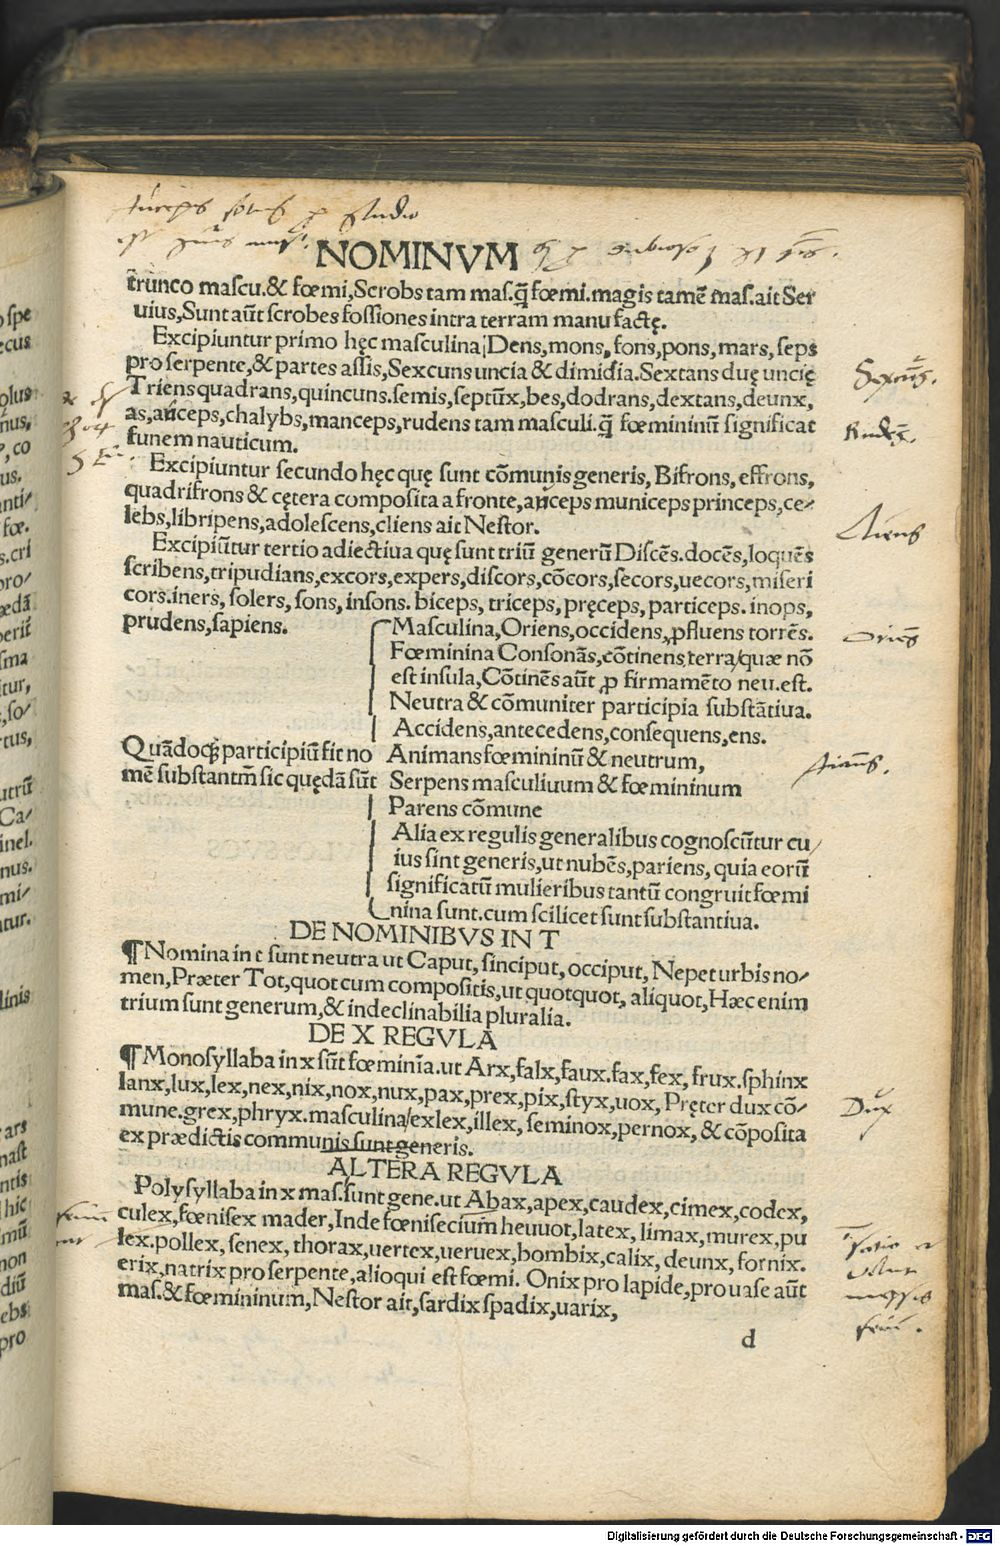 studio
NOMINVM
trunco mascu.& fœmi,Scrobs tam mas.q̃ fœmi.magis tamẽ mas.ait Ser
uius,Sunt aũt scrobes fossiones intra terram manu factę.
Excipiuntur primo hęc masculina,Dens,mons,fons,pons,mars,seps
pro serpente,& partes assis,Sexcuns uncia & dimidia.Sextans duę uncię
Triens quadrans,quincuns.semis,septũx,bes,dodrans,dextans,deunx,
as,auceps,chalybs,manceps,rudens tam masculi.q̃ fœmininũ significat
funem nauticum.
Excipiuntur secundo hęc quę sunt cõmunis generis, Bifrons, effrons,
quadrifrons & cętera composita a fronte,anceps municeps princeps,ce/
lebs,libripens,adolescens,cliens ait Nestor.
Excipiũtur tertio adiectiua quę sunt triũ generũ Discẽs.docẽs,loquẽs
scribens,tripudians,excors,expers,discors,cõcors,secors,uecors,miseri
cors.iners, solers, sons, insons. biceps, triceps, pręceps, particeps. inops,
prudens,sapiens.
Masculina,Oriens,occidens,ꝓfluens torrẽs.
Fœminina Consonãs,cõtinens,terra/quæ nõ
est insula,Cõtinẽs aũt ꝓ firmamẽto neu.est.
Neutra & cõmuniter participia substãtiua.
Accidens,antecedens,consequens,ens.
Quãdoq; participiũ fit no
mẽ substantm̃ sic quędã sũt
Animans fœmininũ & neutrum,
Serpens masculiuum & fœmininum
Parens cõmune
Alia ex regulis generalibus cognoscũtur cu/
ius sint generis,ut nubẽs,pariens, quia eorũ
significatũ mulieribus tantũ congruit fœmi
nina sunt.cum scilicet sunt substantiua.
DE NOMINIBVS IN T
¶ Nomina in t sunt neutra ut Caput, sinciput, occiput, Nepet urbis no/
men,Præter Tot,quot cum compositis,ut quotquot, aliquot,Hæc enim
trium sunt generum,& indeclinabilia pluralia.
DE X REGVLA
¶ Monosyllaba in x sũt fœminĩa.ut Arx,falx,faux.fax,fex, frux.sphinx
lanx,lux,lex,nex,nix,nox,nux,pax,prex,pix,styx,uox, Pręter dux cõ/
mune.grex,phryx.masculina/exlex,illex, seminox,pernox, & cõposita
ex prædictis communis sunt generis.
ALTERA REGVLA
Polysyllaba in x mas.sunt gene.ut Abax,apex,caudex,cimex,codex,
culex,fœnisex mader,Inde fœnisecium̃ heuuot,latex, limax,murex,pu
lex.pollex, senex, thorax,uertex,ueruex,bombix,calix, deunx, fornix.
erix,natrix pro serpente,alioqui est fœmi. Onix pro lapide,pro uase aũt
mas.& fœmininum,Nestor ait,sardix spadix,uarix,
d
Cliens
Dux
Digitalisierung gefördert durch die Deutsche Forschungsgemeinschaft - DFG